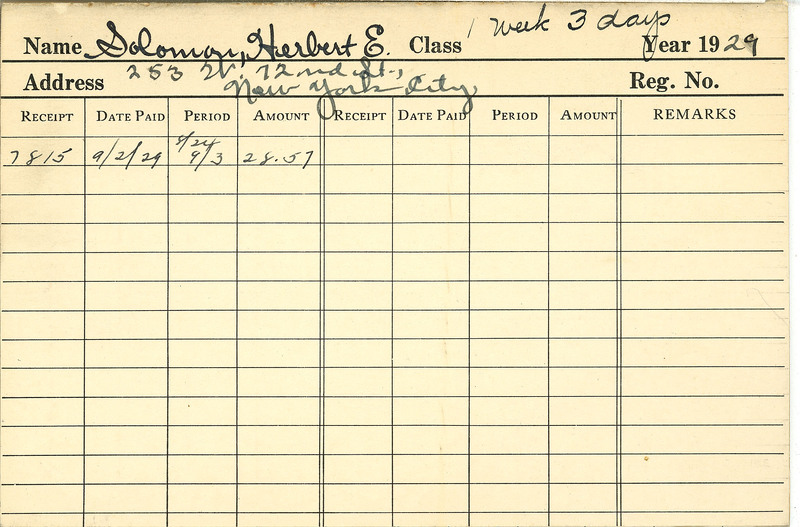 Name Solomon, Herbert E. Class 1 week 3 days Year 1929
Address 253 W. 72nd St., Reg. No.
New York City,
RECEIPT DATE PAID PERIOD AMOUNT RECEIPT DATE PAID PERIOD AMOUNT REMARKS
8/24
7815 9/2/29 9/3 28.57